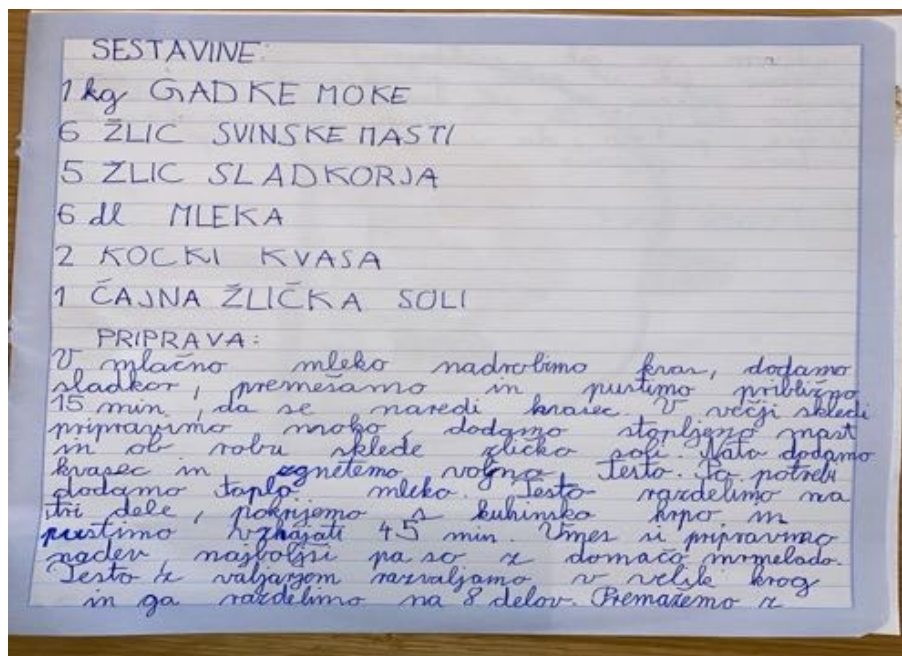 SESTAVINE:
1 kg GADKE MOKE
6 ŽLIC SVINSKE MASTI
5 ŽLIC SLADKORJA
6 dl MLEKA
2 KOCKI KVASA
1 ČAJNA ŽLIČKA SOLI
PRIPRAVA:
V mlačno mleko nadrobimo kvas, dodamo
sladkor, premešamo in pustimo približno
15 min, da se naredi kvasec. V večji skledi
pripravimo moko, dodamo stopljeno mast
in ob robu sklede žličko soli. Nato dodamo
kvasec in zgnetemo voljno testo. Po potrebi
dodamo toplo mleko. Testo razdelimo na
tri dele, pokrijemo s kuhinsko krpo in
pustimo vzhajati 45 min. Vmes si pripravimo
nadev najboljši pa so z domačo mrmelado.
Testo z valjarjem razvaljamo v velik krog
in ga razdelimo na 8 delov. Premažemo z